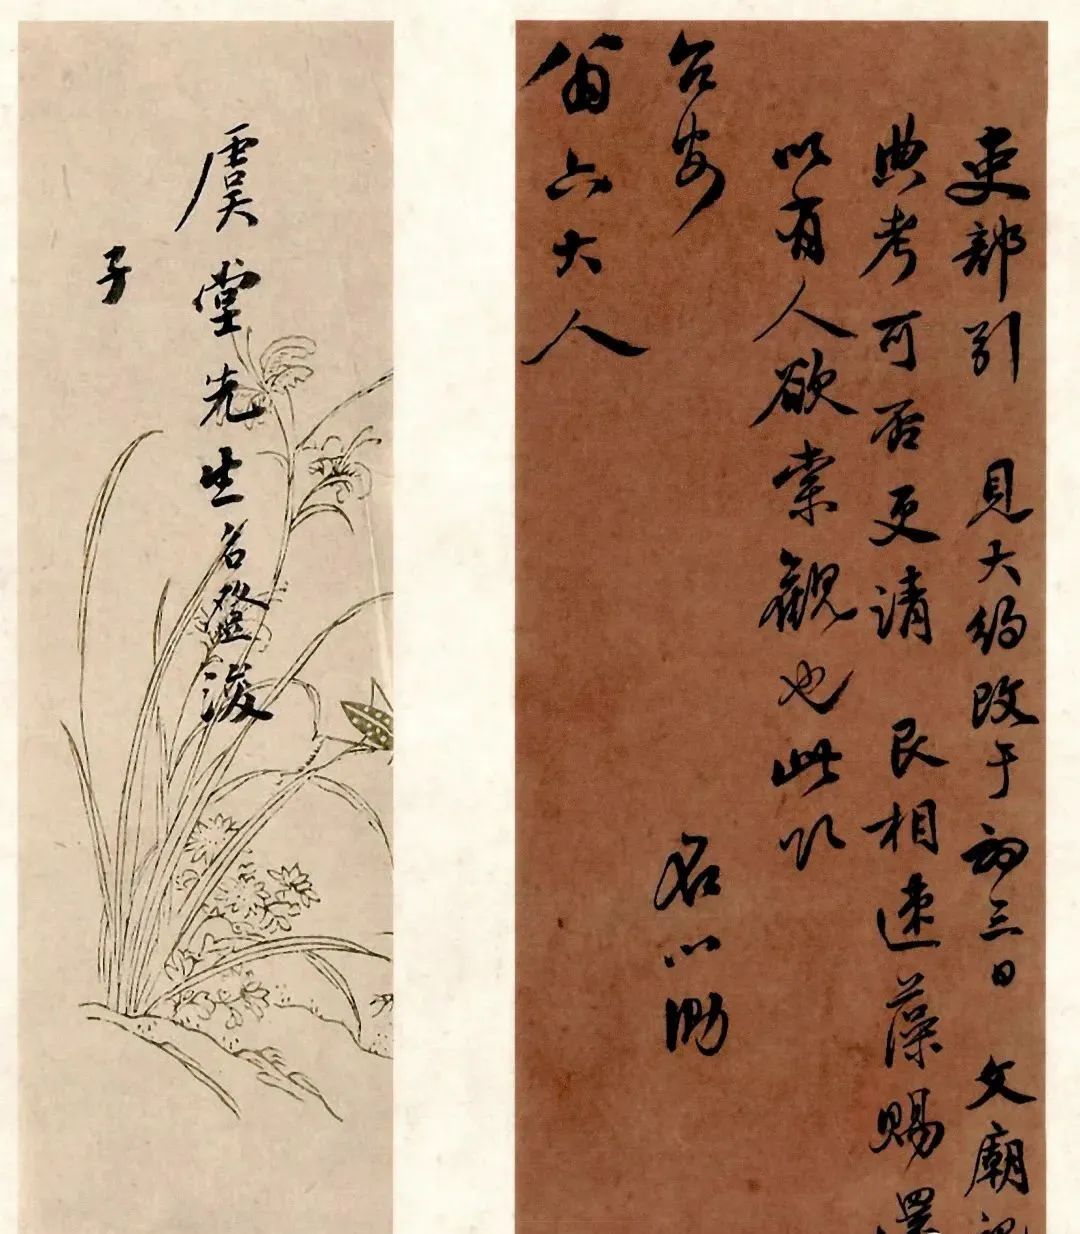 吏部引 見大約改于初三日 文廟
典考可否更請 艮相速藻賜還
以有人欲索觀也此
台安 名心泐
翁六大人
虞堂先生名浚
子